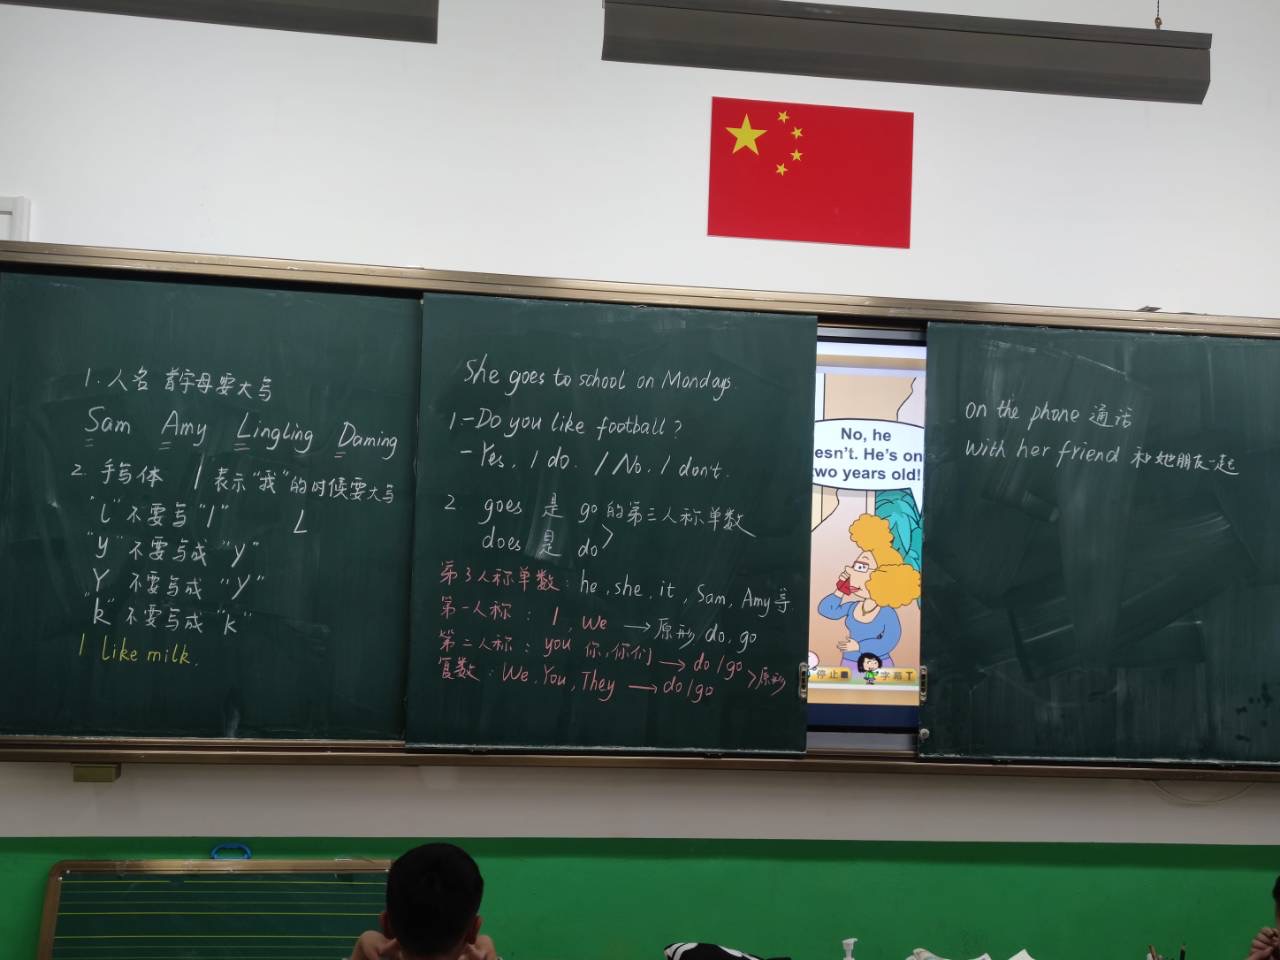 1. 人名 首字母要大写
Sam Amy Lingling Daming
2. 手写体 I 表示“我”的时候要大写
“l”不要写“l” L
“y”不要写成“y”
Y 不要写成“Y”
“k”不要写成“k”
I like milk.
She goes to school on Mondays.
1 - Do you like football?
- Yes, I do. / No, I don't.
2 goes 是 go 的第三人称单数
does 是 do
第3人称单数: he, she, it, Sam, Amy等
第一人称: I, We → 原形 do, go
第二人称: you 你,你们 → do / go
复数: We, You, They → do / go > 原形
No, he
esn't. He's on
wo years old!
停止 字幕
on the phone 通话
with her friend 和她朋友一起